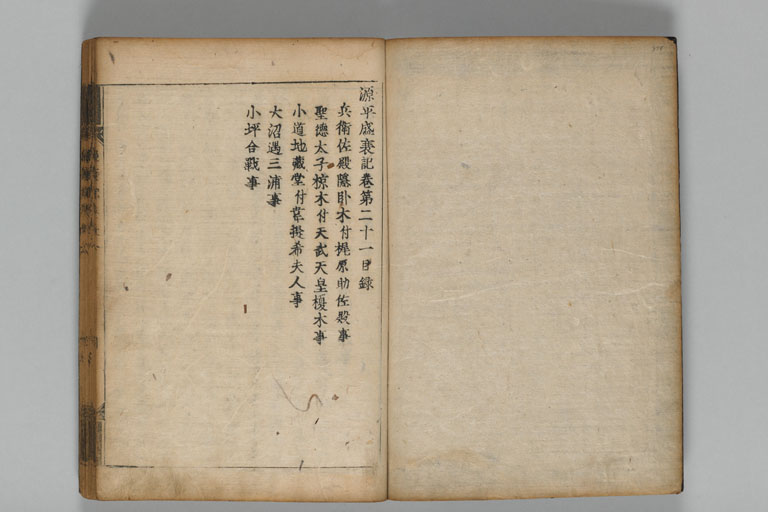 源平盛衰記卷第二十一目錄
兵衛佐殿隱卧木付梶原助佐殿事
聖德太子椋木付天武天皇榎木事
小道地藏堂付韋提希夫人事
大沼遇三浦事
小坪合戰事